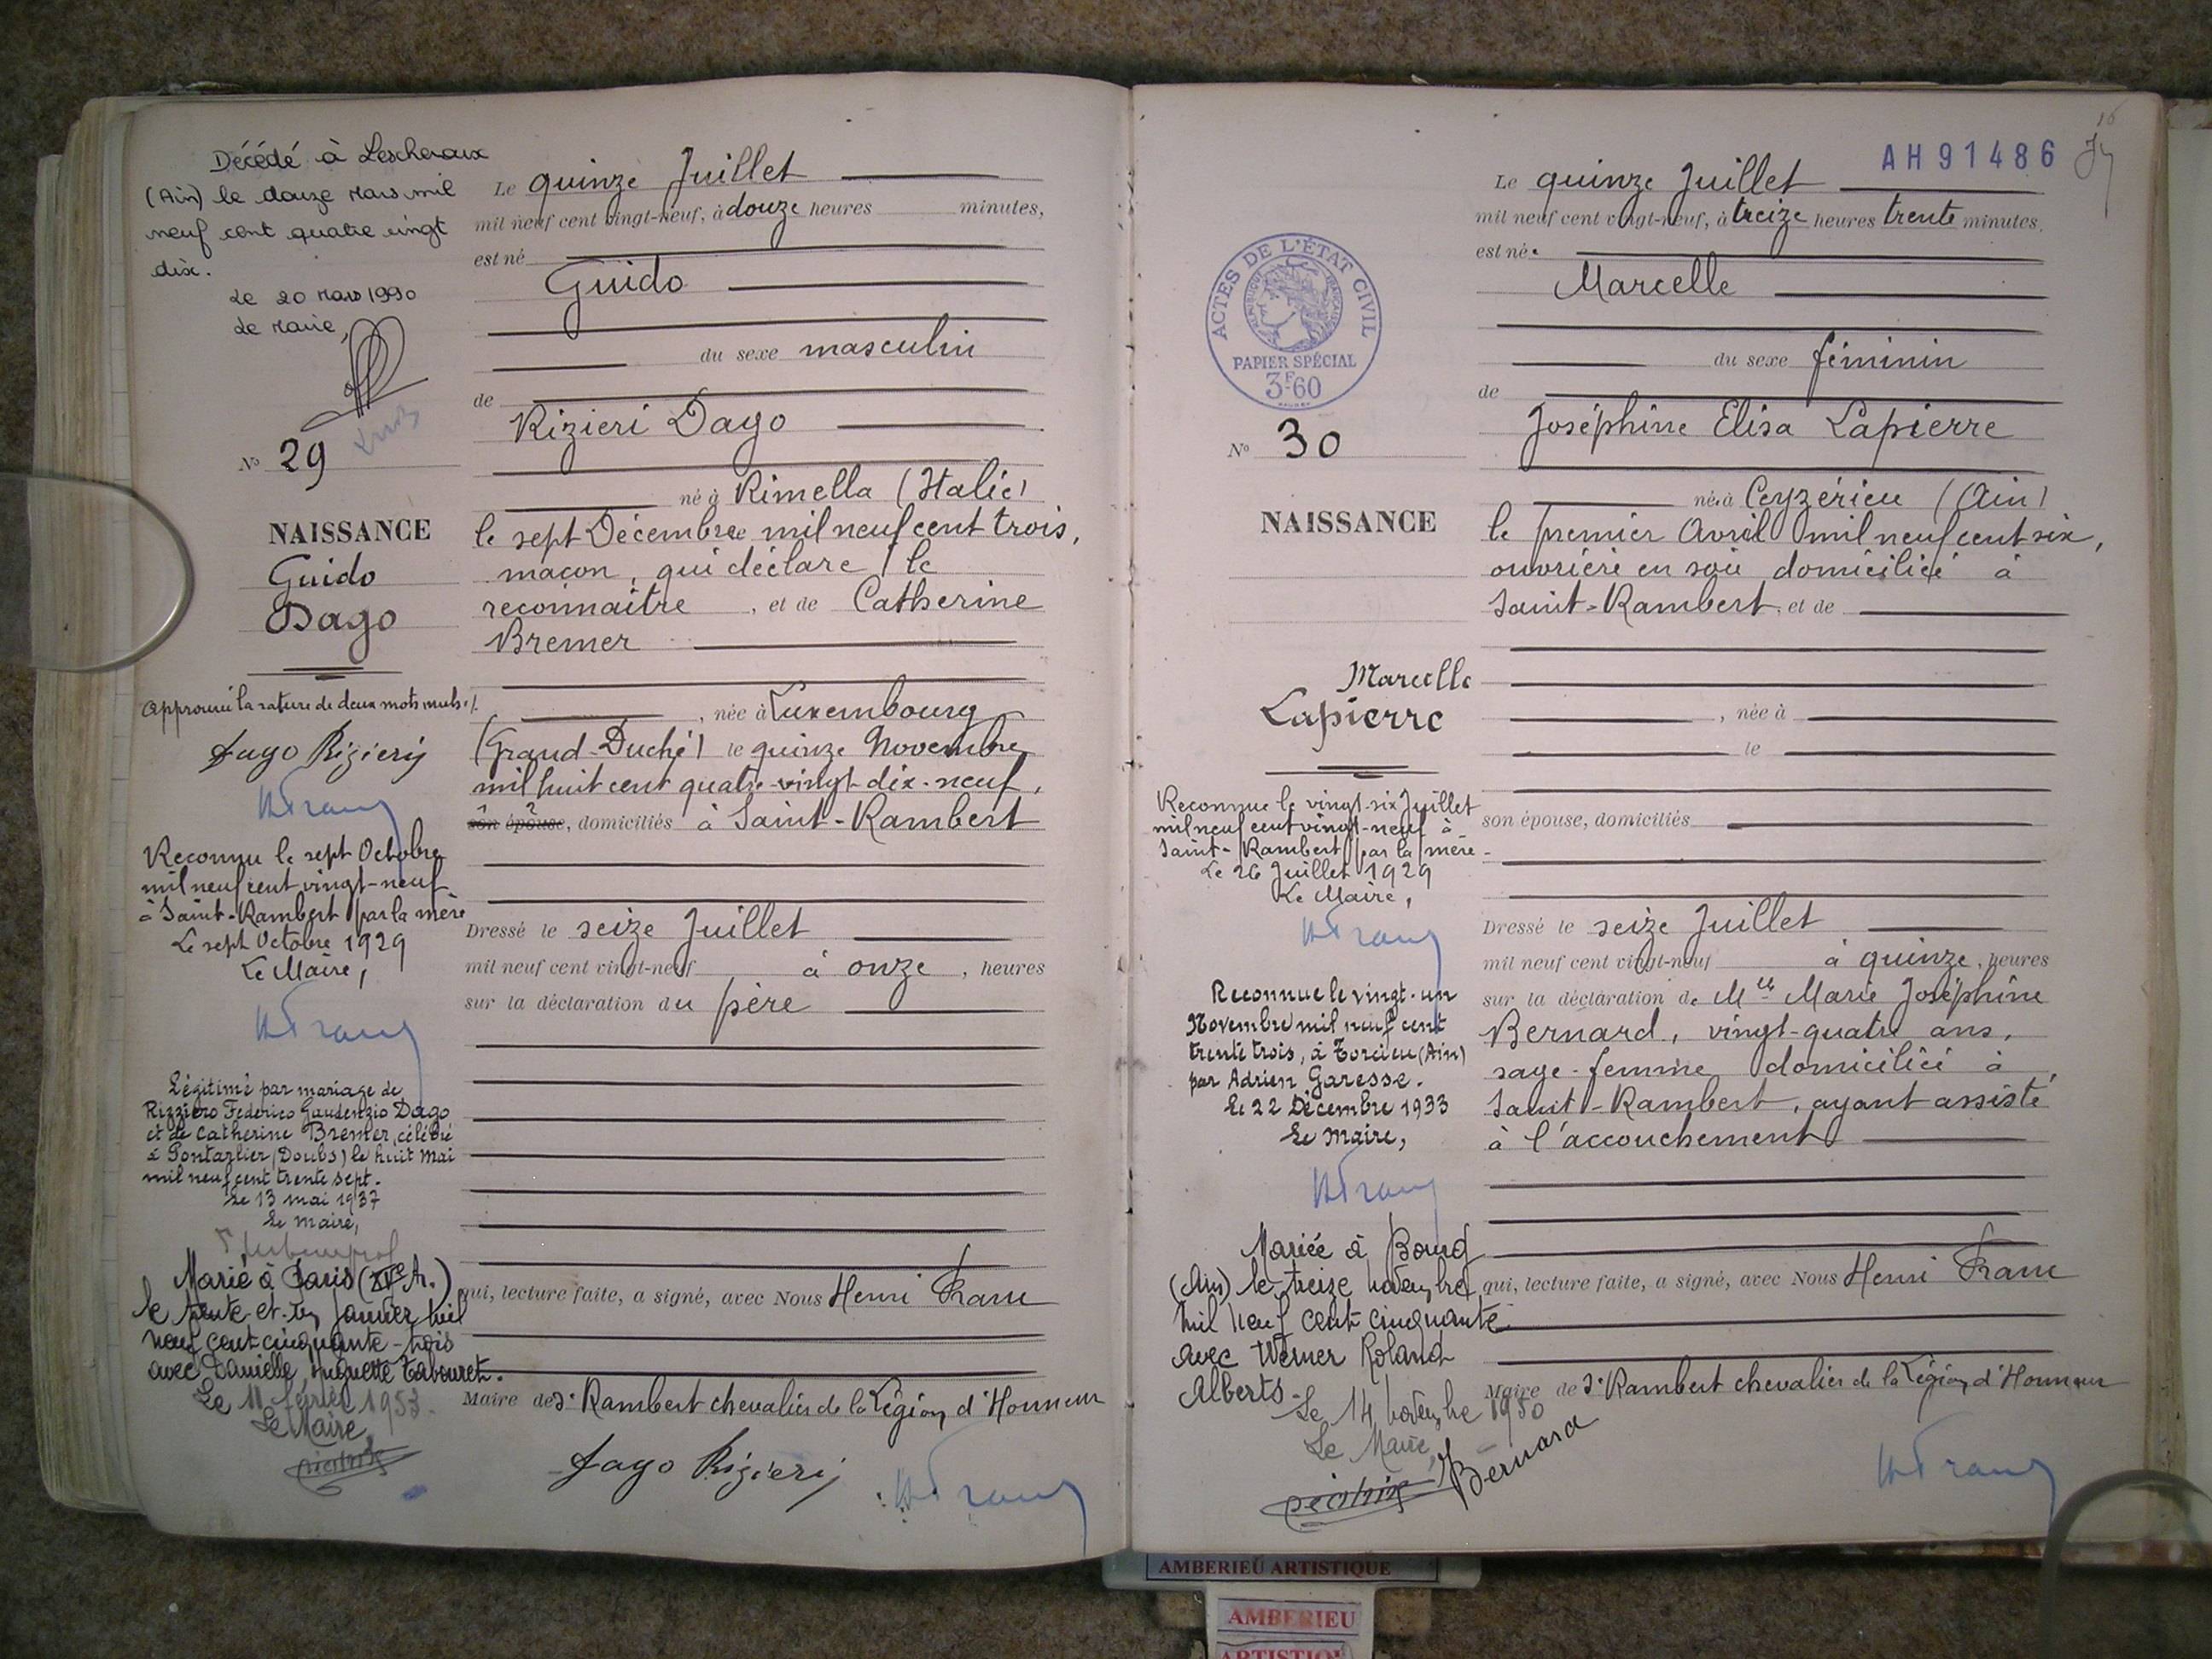 Décédé à Lescheroux
(Ain) le douze Mars mil
neuf cent quatre vingt
dix.
Le 20 Mars 1990
Le Maire,
N° 29
NAISSANCE
Guido
Dago
Approuvé la rature de deux mots nuls
Dago Rizieri
HFranc
Reconnu le sept Octobre
mil neuf cent vingt-neuf
à Saint-Rambert par la mère
Le sept Octobre 1929
Le Maire,
HFranc
Légitimé par mariage de
Rizziero Federico Gaudenzio Dago
et de Catherine Bremer, célébré
à Pontarlier (Doubs) le huit Mai
mil neuf cent trente sept.
Le 13 mai 1937
Le Maire,
Marié à Paris (XVe Ar.)
le trente-et-un Janvier mil
neuf cent cinquante-trois
avec Danielle Huguette Tabouret.
Le 11 février 1953.
Le Maire,
Le quinze Juillet
mil neuf cent vingt-neuf, à douze heures minutes,
est né
Guido
du sexe masculin
de
Rizieri Dago
né à Rimella (Italie)
le sept Décembre mil neuf cent trois,
maçon, qui déclare le
reconnaître, et de Catherine
Bremer
, née à Luxembourg
(Grand-Duché) le quinze Novembre
mil huit cent quatre-vingt-dix-neuf,
son épouse, domiciliés à Saint-Rambert
Dressé le seize Juillet
mil neuf cent vingt-neuf à onze, heures
sur la déclaration du père
qui, lecture faite, a signé, avec Nous Henri Franc
Maire de St Rambert chevalier de la Légion d'Honneur
Dago Rizieri
HFranc
16
AH91486
ACTES DE L'ÉTAT CIVIL
RÉPUBLIQUE FRANÇAISE
PAPIER SPÉCIAL
3F60
N° 30
NAISSANCE
Marcelle
Lapierre
Reconnue le vingt-six Juillet
mil neuf cent vingt-neuf à
Saint-Rambert par la mère
Le 26 Juillet 1929
Le Maire,
HFranc
Reconnue le vingt-un
Novembre mil neuf cent
trente trois, à Torcieu (Ain)
par Adrien Garesse.
Le 22 Décembre 1933
Le Maire,
HFranc
Mariée à Bourg
(Ain) le treize novembre
mil neuf cent cinquante
avec Werner Roland
Alberts.
Le 14 novembre 1950
Le Maire,
Le quinze Juillet
mil neuf cent vingt-neuf, à treize heures trente minutes,
est née
Marcelle
du sexe féminin
de
Joséphine Elisa Lapierre
née à Ceyzérieu (Ain)
le premier Avril mil neuf cent six,
ouvrière en soie domiciliée à
Saint-Rambert, et de
, née à
le
son épouse, domiciliés
Dressé le seize Juillet
mil neuf cent vingt-neuf à quinze, heures
sur la déclaration de Mlle Marie Joséphine
Bernard, vingt-quatre ans,
sage-femme domiciliée à
Saint-Rambert, ayant assisté
à l'accouchement
qui, lecture faite, a signé, avec Nous Henri Franc
Maire de St Rambert chevalier de la Légion d'Honneur
Bernard
HFranc
AMBERIEU ARTISTIQUE
AMBERIEU
ARTISTIQUE